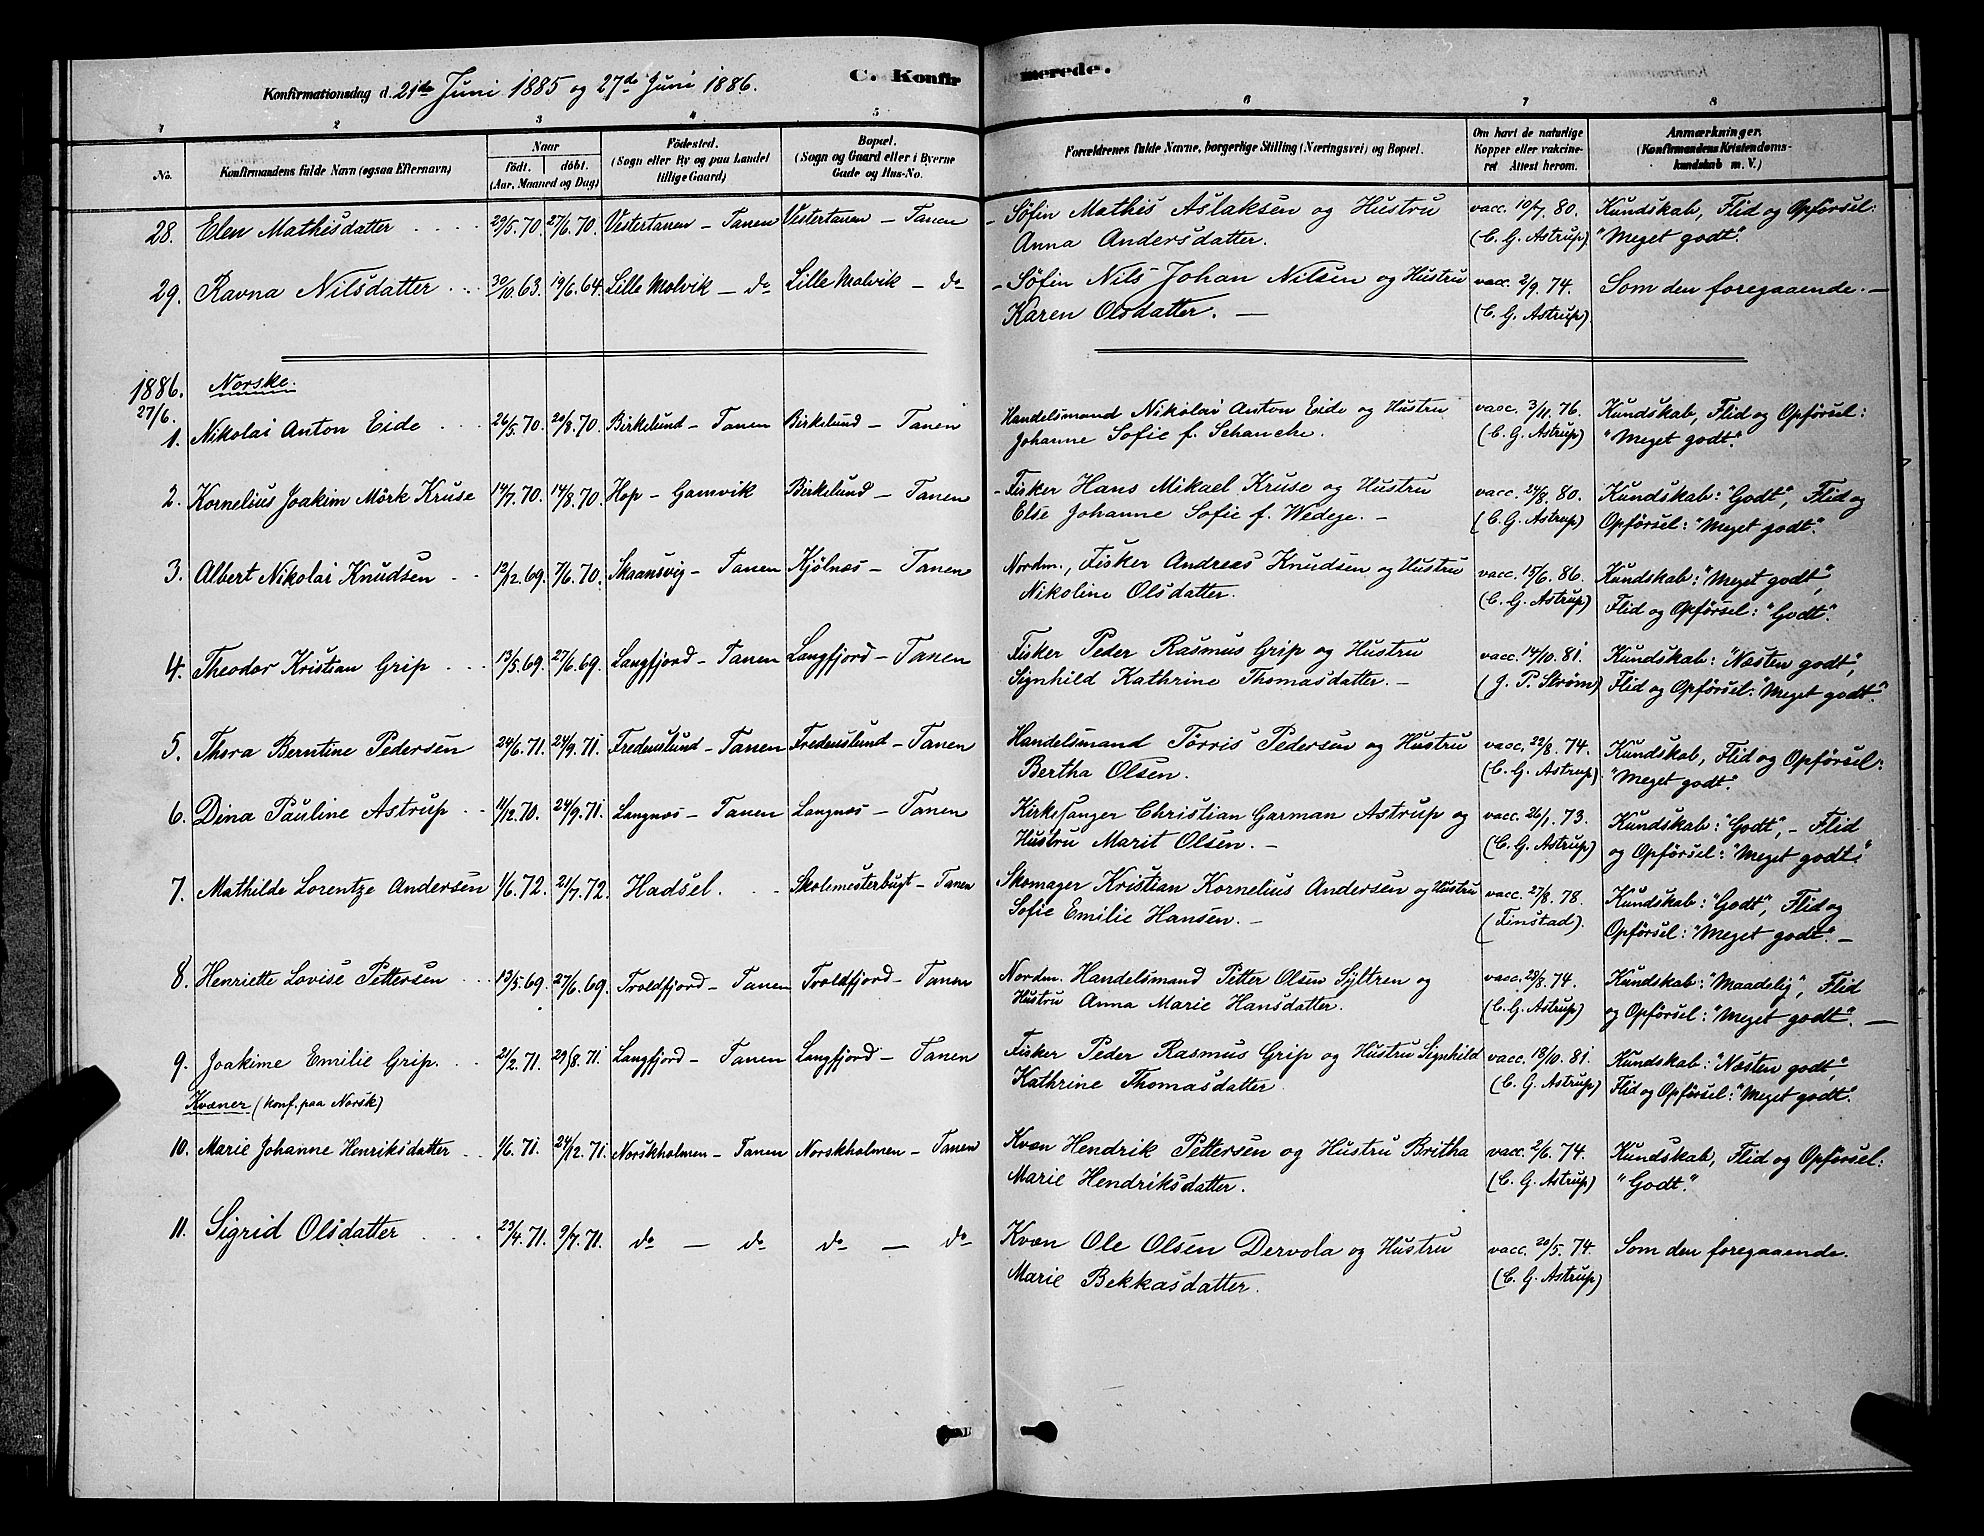 C. Konfirmerede.
Konfirmationsdag d. 21de Juni 1885 og 27de Juni 1886.
1 2 3 4 5 6 7 8
No.
Konfirmandens fulde Navn (ogsaa Efternavn)
Naar
født. døbt.
(Aar, Maaned og Dag)
Fødested.
(Sogn eller By og paa Landet
tillige Gaard)
Bopæl.
(Sogn og Gaard eller i Byerne
Gade og Hus-No.
Forældrenes fulde Navne, borgerlige Stilling (Næringsvei) og Bopæl.
Om havt de naturlige
Kopper eller vakcine-
ret Attest herom.
Anmærkninger.
(Konfirmandens Kristendoms-
kundskab m. V.)
28. Elen Mathisdatter 29/5.70. 27/6.70. Vestertanen - Tanen Vestertanen - Tanen - Søfin Mathis Aslaksen og Hustru vacc. 10/7. 80. Kundskab, Flid og Opførsel:
Anna Andersdatter. (C. G. Astrup) "Meget godt".
29. Ravna Nilsdatter 30/10.63. 19/6.64. Lille Molvik - do Lille Molvik - do - Søfin Nils Johan Nilsen og Hustru vacc. 2/9. 74. Som den foregaaende. -
Karen Olsdatter. - (C. G. Astrup)
1886. Norske.
27/6.
1. Nikolai Anton Eide 26/5.70. 20/8.70. Birkelund - Tanen Birkelund - Tanen Handelsmand Nikolai Anton Eide og Hustru vacc. 3/11. 76. Kundskab, Flid og Opførsel:
Johanne Sofie f. Schanche. (C. G. Astrup) "Meget godt".
2. Kornelius Joakim Mörk Kruse 14/7.70. 14/8.70. Hop - Gamvik Birkelund - Tanen - Fisker Hans Mikael Kruse og Hustru vacc. 24/8. 80. Kundskab: "Godt", Flid og
Else Johanne Sofie f. Wedege. - (C. G. Astrup) Opførsel: "Meget godt".
3. Albert Nikolai Knudsen 12/12.69. 7/6.70. Skaansvig - Tanen Kjölnæs - Tanen Nordm., Fisker Andreas Knudsen og Hustru vacc. 15/6. 86. Kundskab: "Meget godt",
Nikoline Olsdatter. (C. G. Astrup) Flid og Opførsel: "Godt".
4. Theodor Kristian Grip 13/5.69. 27/6.69. Langfjord - Tanen Langfjord - Tanen Fisker Peder Rasmus Grip og Hustru vacc. 14/10. 81. Kundskab: "Næsten godt",
Signhild Kathrine Thomasdatter. - (J. P. Strøm) Flid og Opførsel: "Meget godt".
5. Thora Berntine Pedersen 24/6.71. 24/9.71. Fredenslund - Tanen Fredenslund - Tanen Handelsmand Törris Pedersen og Hustru vacc. 22/8. 74. Kundskab, Flid og Opførsel:
Bertha Olsen. (C. G. Astrup) "Meget godt".
6. Dina Pauline Astrup 11/12.70. 24/9.71. Langnæs - Tanen Langnæs - Tanen Kirkesanger Christian Garman Astrup og vacc. 26/1. 73. Kundskab: "Godt", - Flid
Hustru Marit Olsen. - (C. G. Astrup) og Opførsel: "Meget godt".
7. Mathilde Lorentze Andersen 1/6.72. 21/7.72. Hadsel. Skolemesterbugt - Tanen Skomager Kristian Kornelius Andersen og Hustru vacc. 27/8. 78. Kundskab: "Godt", Flid og
Sofie Emilie Hansen. - (Finstad). Opførsel: "Meget godt". -
8. Henriette Lovise Pettersen 13/5.69. 27/6.69. Troldfjord - Tanen Troldfjord - Tanen Nordm. Handelsmand Petter Olsen Syltren og vacc. 28/8. 74. Kundskab: "Maadelig", Flid
Hustru Anna Marie Hansdatter. (C. G. Astrup) og Opførsel: "Meget godt". -
9. Joakime Emilie Grip. 21/2.71. 29/8.71. Langfjord - Tanen Langfjord - Tanen Fisker Peder Rasmus Grip og Hustru Signhild vacc. 18/10. 81. Kundskab: "Næsten godt",
Kathrine Thomasdatter (C. G. Astrup) Flid og Opførsel: "Meget godt".
Kvæner (konf. paa Norsk)
10. Marie Johanne Henriksdatter 1/6.71. 24/12.71. Norskholmen - Tanen Norskholmen - Tanen Kvæn Hendrik Pettersen og Hustru Britha vacc. 2/6. 74. Kundskab, Flid og Opførsel:
Marie Hendriksdatter. (C. G. Astrup) "Godt."
11. Sigrid Olsdatter 23/4.71. 9/7.71. do - do do - do Kvæn Ole Olsen Dervola og Hustru vacc. 20/5. 74. Som den foregaaende.
Marie Bekkasdatter. (C. G. Astrup)